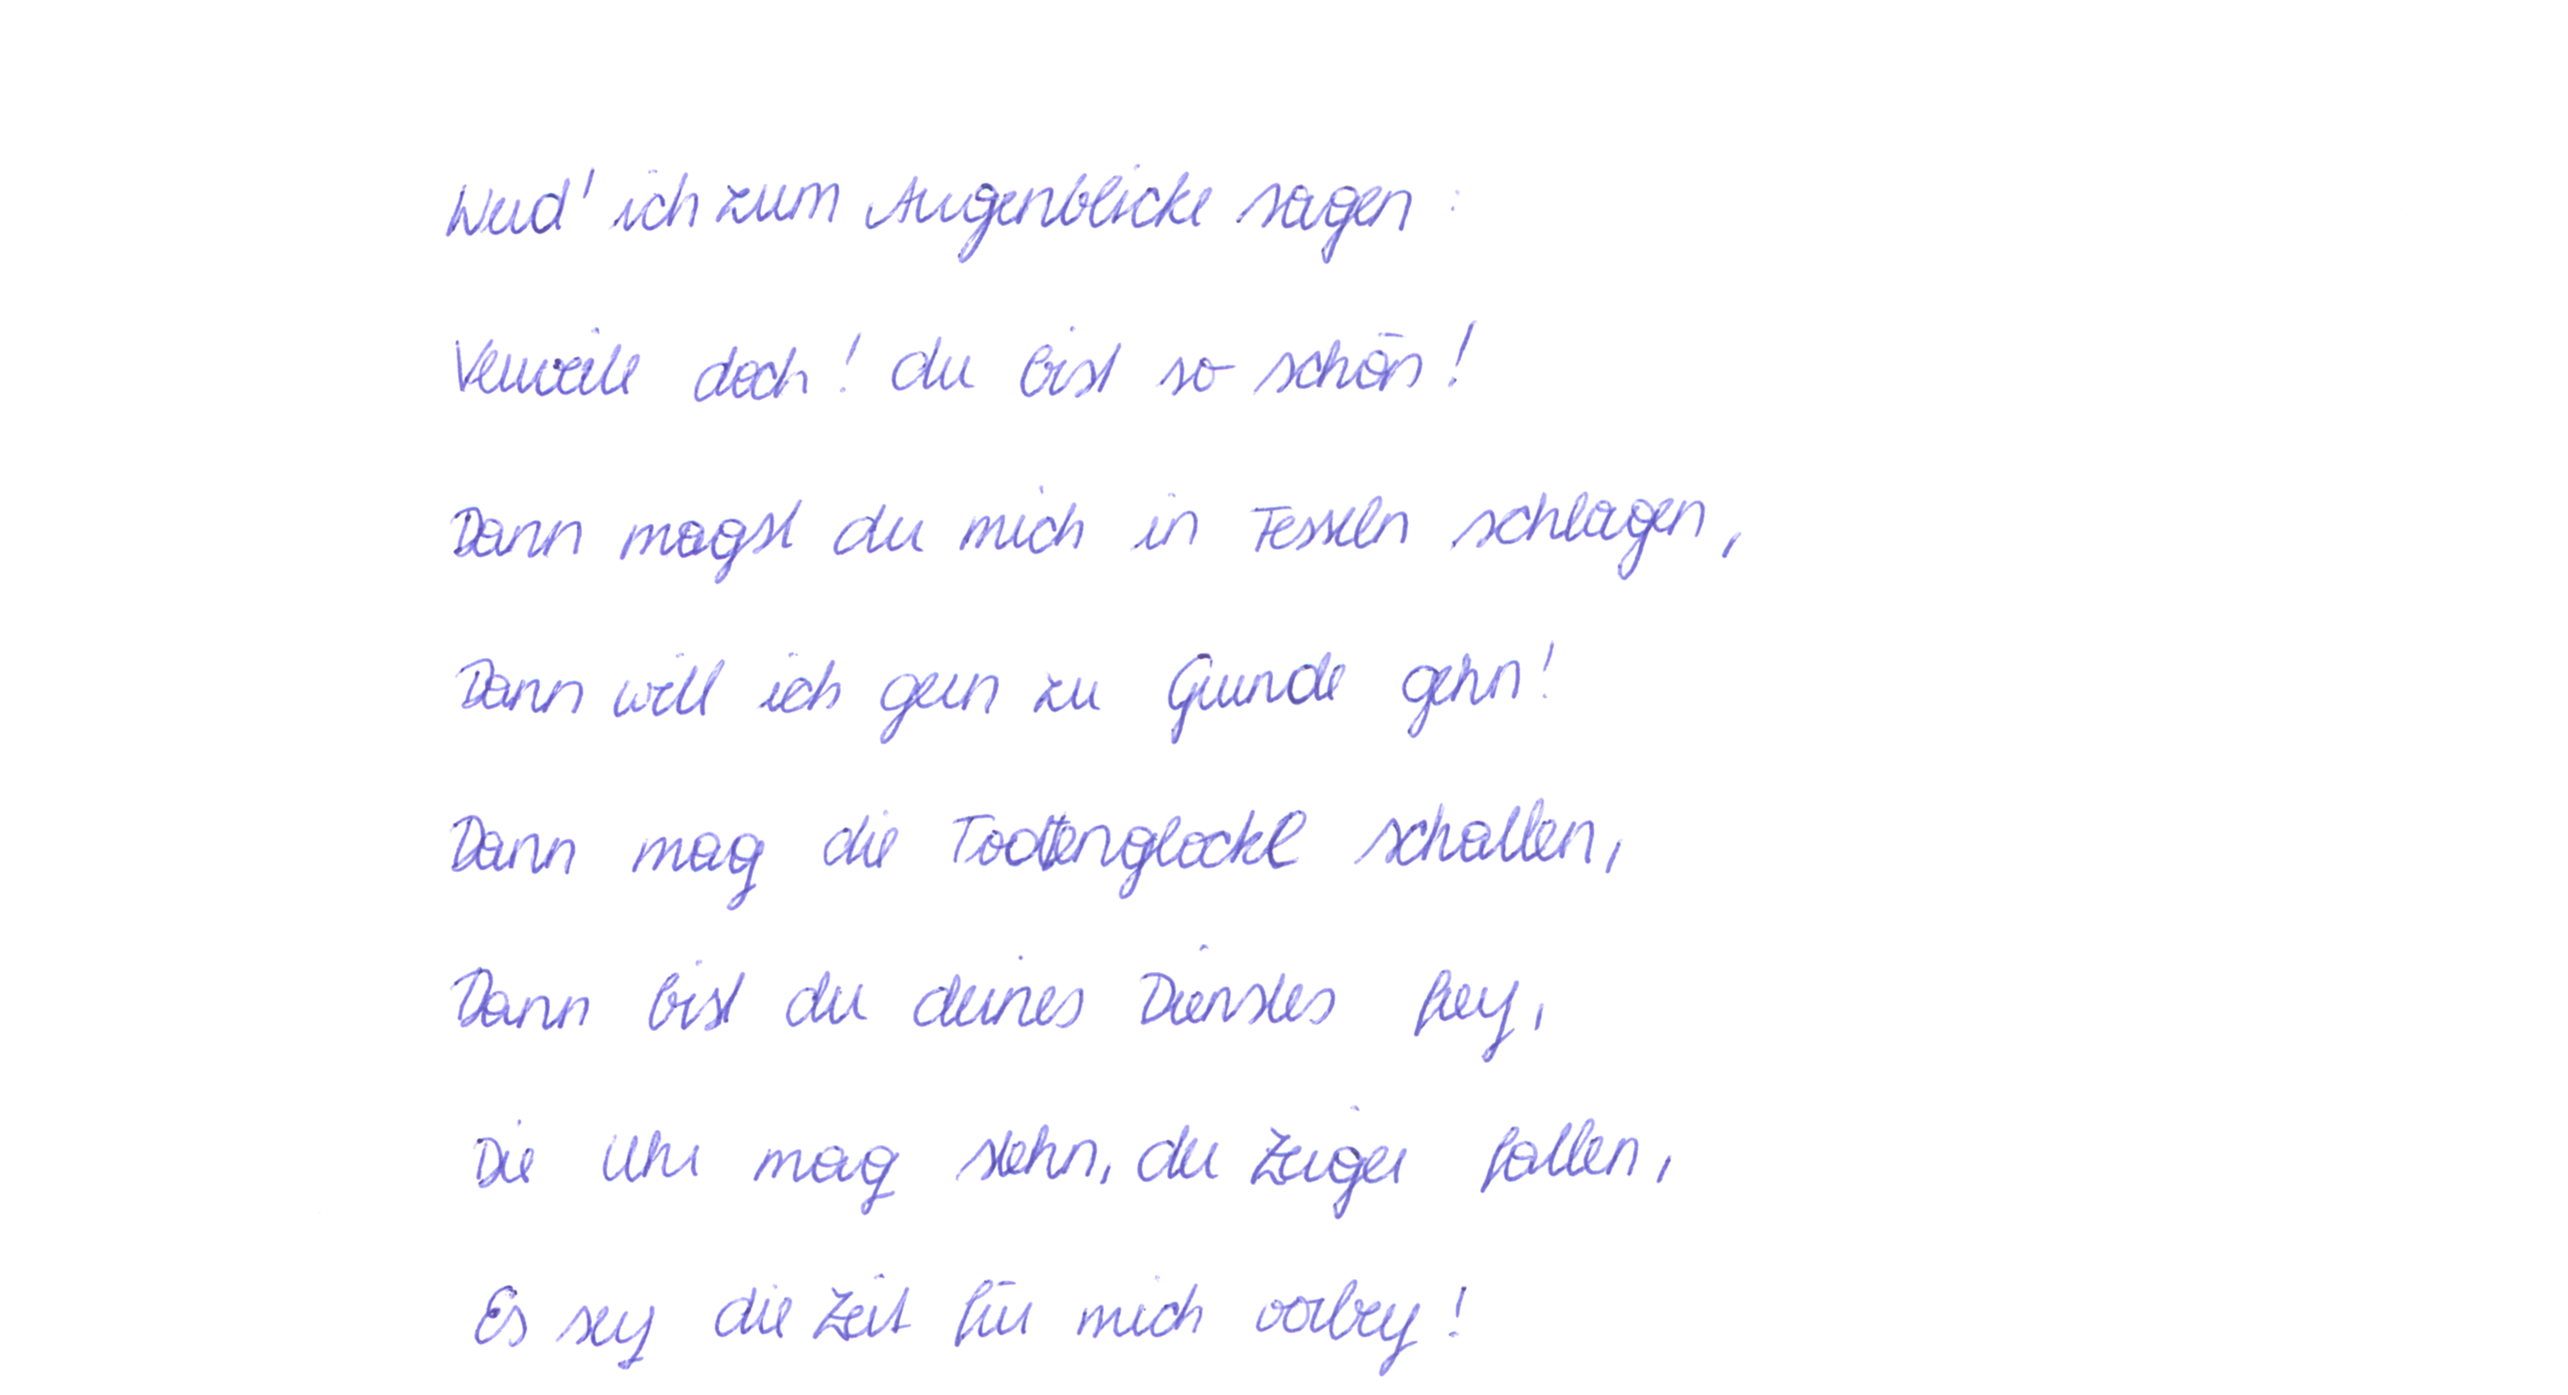 Werd' ich zum Augenblicke sagen :
Verweile doch! du bist so schön!
Dann magst du mich in Fesseln schlagen,
Dann will ich gern zu Grunde gehn!
Dann mag die Todtenglocke schallen,
Dann bist du deines Dienstes frey,
Die Uhr mag stehn, der Zeiger fallen,
Es sey die Zeit für mich vorbey!